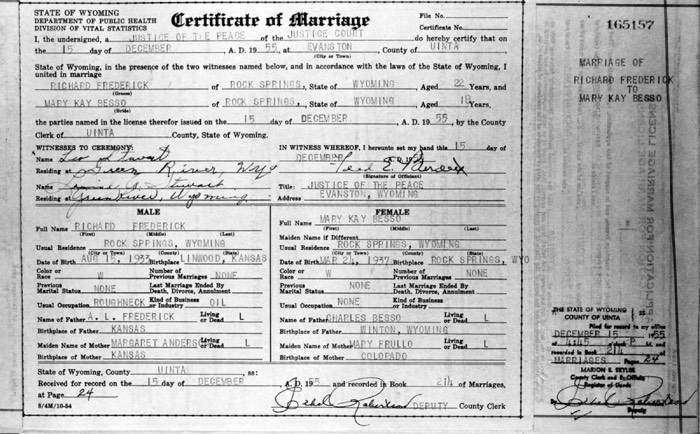 STATE OF WYOMING
DEPARTMENT OF PUBLIC HEALTH
DIVISION OF VITAL STATISTICS
Certificate of Marriage
File No.
Certificate No.
I, the undersigned, a JUSTICE OF THE PEACE of the JUSTICE COURT do hereby certify that on
the 15 day of DECEMBER, A. D. 1955, at EVANSTON, County of UINTA
(City or Town)
State of Wyoming, in the presence of the two witnesses named below, and in accordance with the laws of the State of Wyoming, I
united in marriage
RICHARD FREDERICK of ROCK SPRINGS, State of WYOMING, Aged 22 Years, and
(Groom)
MARY KAY BESSO of ROCK SPRINGS, State of WYOMING, Aged 18 Years,
(Bride)
the parties named in the license therefor issued on the 15 day of DECEMBER, A. D. 1955, by the County
Clerk of UINTA County, State of Wyoming.
WITNESSES TO CEREMONY:
Name Leo Stewart
Residing at Green River, Wyo
Name Stewart
Residing at Green River, Wyoming
IN WITNESS WHEREOF, I hereunto set my hand this 15 day of
DECEMBER
(Signature of Officiant)
Title: JUSTICE OF THE PEACE
Address EVANSTON, WYOMING
MALE
Full Name RICHARD FREDERICK
(First) (Middle) (Last)
Usual Residence ROCK SPRINGS, WYOMING
(City or Town) (State)
Date of Birth AUG 15, 1933 Birthplace LINWOOD, KANSAS
Color or Race W Number of Previous Marriages NONE
Previous Marital Status NONE Last Marriage Ended By Death, Divorce, Annulment
Usual Occupation ROUGHNECK Kind of Business or Industry OIL
Name of Father A. L. FREDERICK Living or Dead L
Birthplace of Father KANSAS
Maiden Name of Mother MARGARET ANDERS Living or Dead L
Birthplace of Mother KANSAS
FEMALE
Full Name MARY KAY BESSO
(First) (Middle) (Last)
Maiden Name if Different
Usual Residence ROCK SPRINGS, WYOMING
(City or Town) (State)
Date of Birth MAR 24, 1937 Birthplace ROCK SPRINGS, WYO
Color or Race W Number of Previous Marriages NONE
Previous Marital Status Last Marriage Ended By Death, Divorce, Annulment
Usual Occupation NONE Kind of Business or Industry
Name of Father CHARLES BESSO Living or Dead L
Birthplace of Father WINTON, WYOMING
Maiden Name of Mother MARY FRULLO Living or Dead L
Birthplace of Mother COLORADO
State of Wyoming, County of UINTA, ss:
Received for record on the 15 day of DECEMBER, A. D. 1955 and recorded in Book 214 of Marriages,
at Page 24
Ethel Robertson DEPUTY County Clerk
8/4M/10-54
165157
MARRIAGE OF
RICHARD FREDERICK
TO
MARY KAY BESSO
APPLICATION FOR MARRIAGE LICENSE
THE STATE OF WYOMING
COUNTY OF UINTA ss
Filed for record in my office
DECEMBER 15 1955
at 4:45 o'clock P M. and
recorded in Book 214
MARRIAGES Page 24
MARION E. SEYLER
County Clerk and Ex-Officio
Register of Deeds
By Ethel Robertson
Deputy